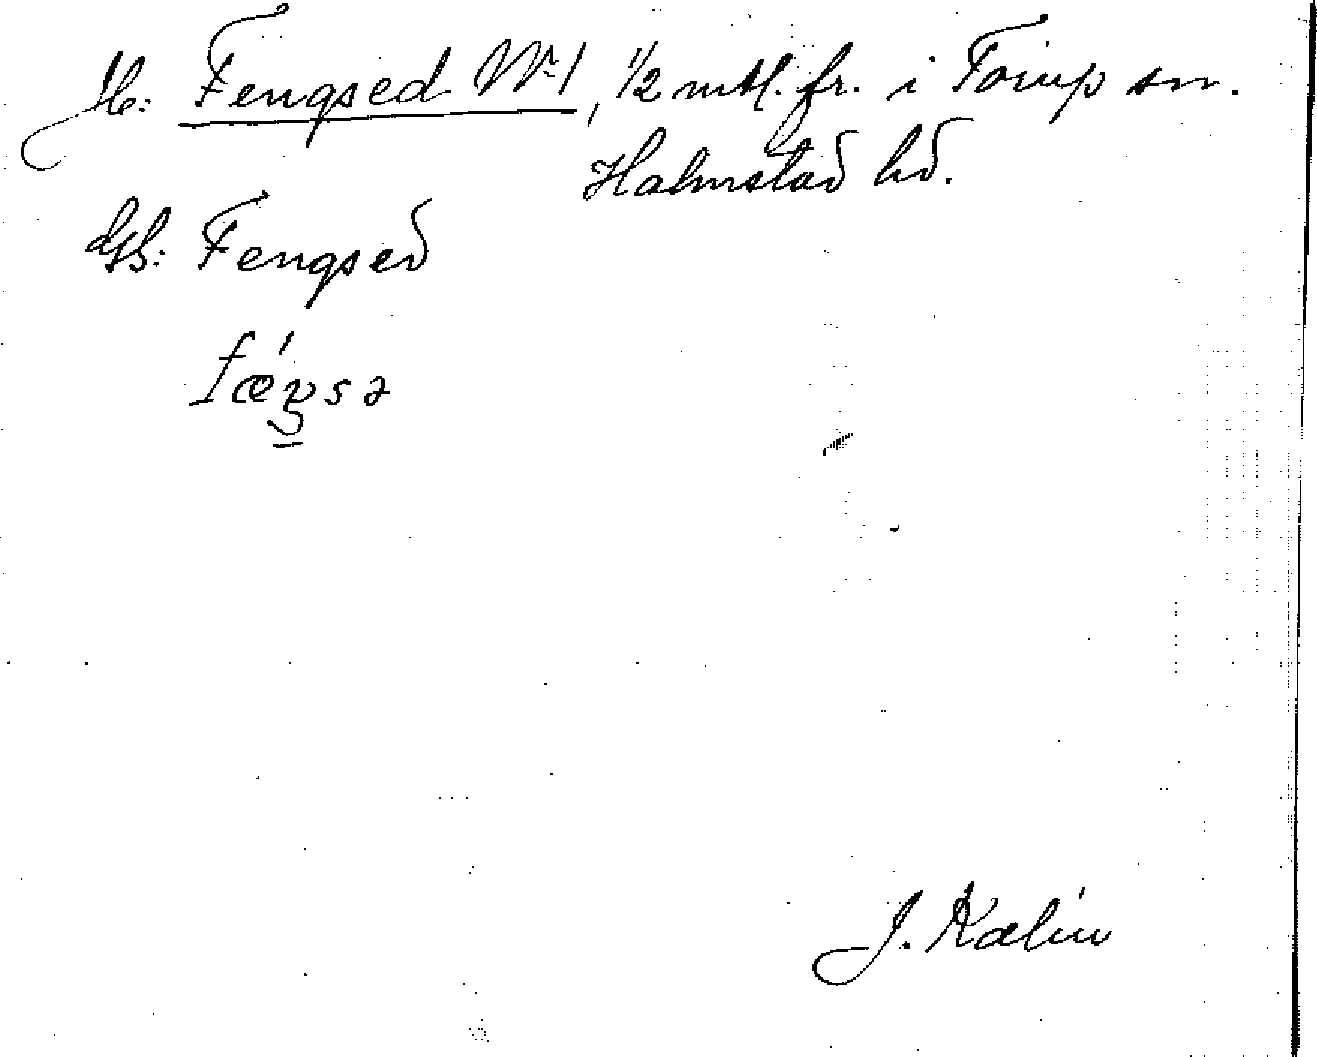 Jb: Fengsed Nr 1, 1/2 mtl. fr. i Torup sn.
Halmstad hd.
Gs: Fengsed
fǽŋsə
J. Kalén